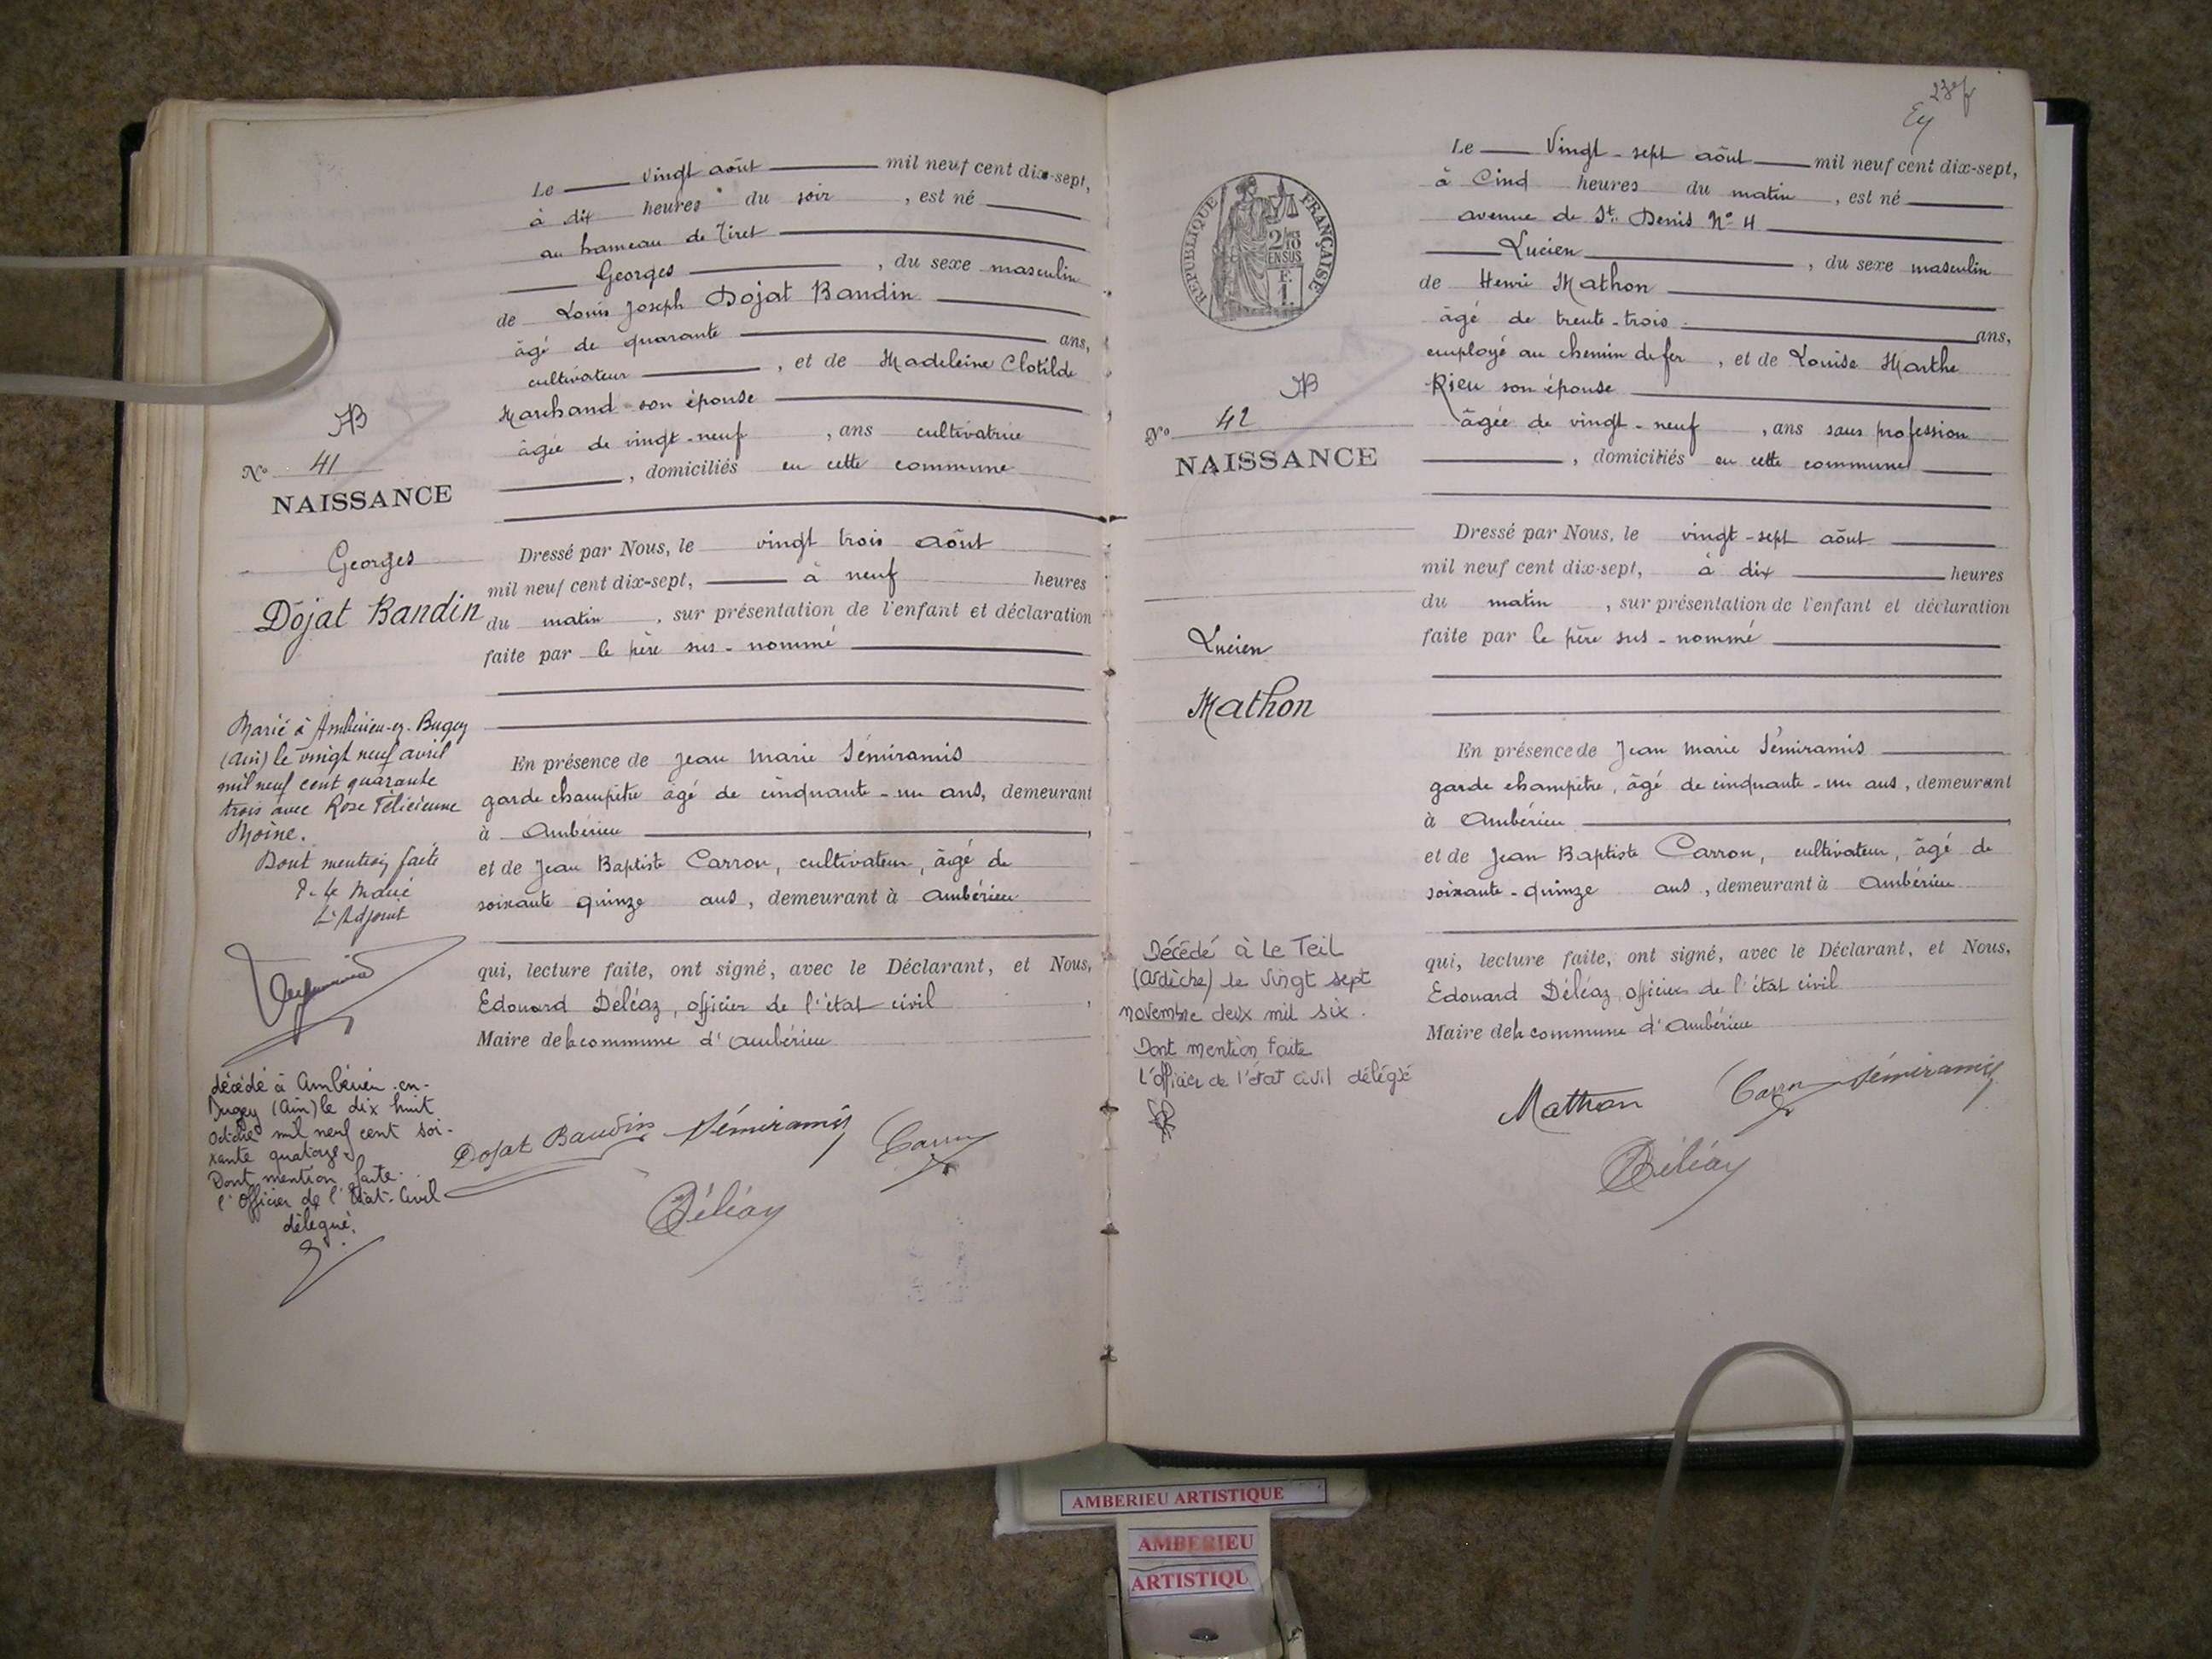 Le vingt août mil neuf cent dix-sept,
à dix heures du soir, est né
au hameau de Tiret
Georges, du sexe masculin
de Louis Joseph Dojat Baudin
âgé de quarante ans,
cultivateur, et de Madeleine Clotilde
Marchand son épouse
âgée de vingt-neuf, ans cultivatrice
, domiciliés en cette commune
AB
No 41
NAISSANCE
Georges
Dojat Baudin
Dressé par Nous, le vingt trois août
mil neuf cent dix-sept, à neuf heures
du matin, sur présentation de l'enfant et déclaration
faite par le père sus-nommé
Marié à Ambérieu-en-Bugey
(Ain) le vingt neuf avril
mil neuf cent quarante
trois avec Rose Félicienne
Moine.
Dont mention faite
P. le Maire
L'Adjoint
En présence de Jean Marie Sémiramis
garde champêtre âgé de cinquante-un ans, demeurant
à Ambérieu,
et de Jean Baptiste Carron, cultivateur, âgé de
soixante quinze ans, demeurant à Ambérieu
qui, lecture faite, ont signé, avec le Déclarant, et Nous,
Edouard Déléaz, officier de l'état civil,
Maire de la commune d'Ambérieu
décédé à Ambérieu-en-
Bugey (Ain) le dix huit
Octobre mil neuf cent soi-
xante quatorze.
Dont mention faite.
l'Officier de l'Etat-Civil
délégué.
Dojat Baudin Sémiramis Carron
Déléaz
23e f
Le Vingt-sept août mil neuf cent dix-sept,
à Cinq heures du matin, est né
avenue de St. Denis No 4
Lucien, du sexe masculin
de Henri Mathon
âgé de trente-trois ans,
employé au chemin de fer, et de Louise Marthe
Rieu son épouse
âgée de vingt-neuf, ans sans profession
, domiciliés en cette commune
REPUBLIQUE FRANÇAISE
2/10
EN SUS
F.
1.
AB
No 42
NAISSANCE
Lucien
Mathon
Dressé par Nous, le vingt-sept août
mil neuf cent dix-sept, à dix heures
du matin, sur présentation de l'enfant et déclaration
faite par le père sus-nommé
En présence de Jean Marie Sémiramis
garde champêtre, âgé de cinquante-un ans, demeurant
à Ambérieu,
et de Jean Baptiste Carron, cultivateur, âgé de
soixante-quinze ans, demeurant à Ambérieu
qui, lecture faite, ont signé, avec le Déclarant, et Nous,
Edouard Déléaz, officier de l'état civil
Maire de la commune d'Ambérieu
Décédé à Le Teil
(Ardèche) le Vingt sept
novembre deux mil six.
Dont mention faite
L'officier de l'état civil délégué
Mathon Carron Sémiramis
Déléaz
AMBERIEU ARTISTIQUE
AMBERIEU
ARTISTIQU